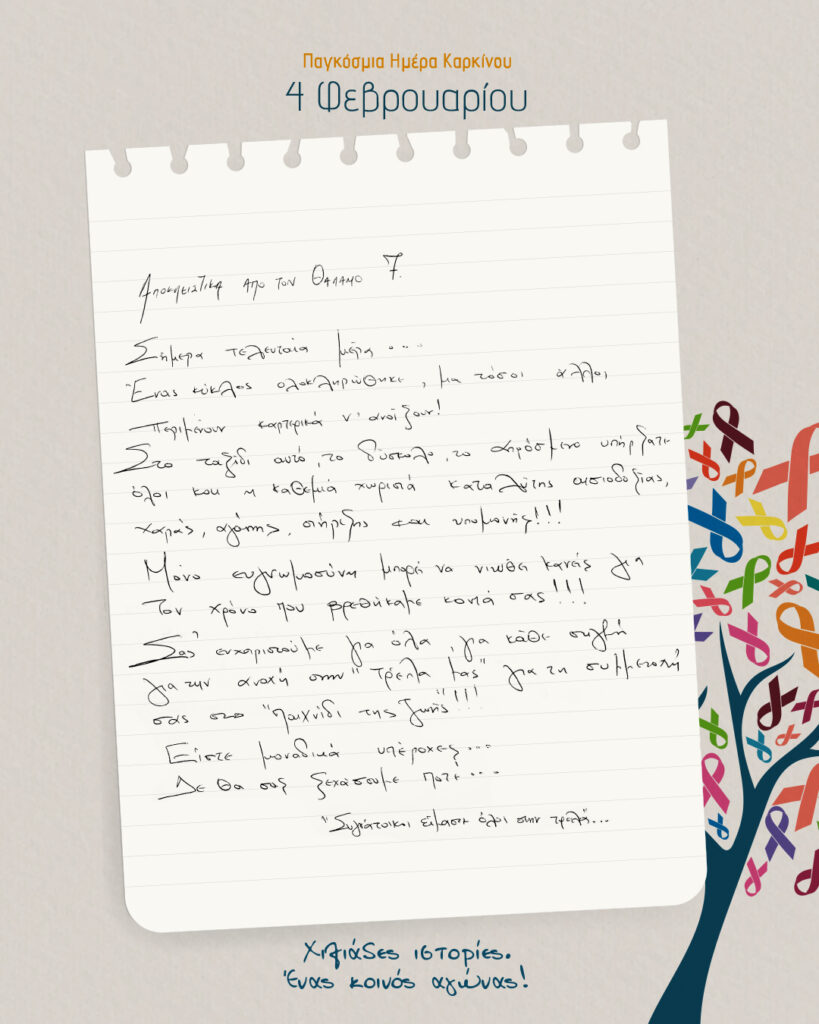 Παγκόσμια Ημέρα Καρκίνου
4 Φεβρουαρίου
Αποκλειστικά από τον Θάλαμο 7.
Σήμερα τελευταία μέρα ....
Ένας κύκλος ολοκληρώθηκε, μα τόσοι άλλοι
περιμένουν καρτερικά ν' ανοίξουν!
Στο ταξίδι αυτό, το δύσκολο, το απρόσμενο υπήρξατε
όλοι και η καθεμιά χωριστά καταλύτης αισιοδοξίας,
χαράς, αγάπης, στήριξης και υπομονής!!!
Μόνο ευγνωμοσύνη μπορεί να νιώθει κανείς για
τον χρόνο που βρεθήκαμε κοντά σας!!!
Σας ευχαριστούμε για όλα, για κάθε στιγμή
για την ανοχή στην "τρέλα μας" για τη συμμετοχή
σας στο "παιχνίδι της ζωής"!!!
Είστε μοναδικά υπέροχες....
Δε θα σας ξεχάσουμε ποτέ....
"Συγκάτοικοι είμαστε όλοι στην τρέλα"...
Χιλιάδες ιστορίες.
Ένας κοινός αγώνας!